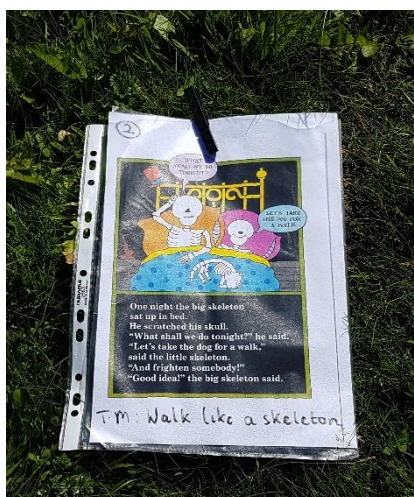 2.
WHAT
SHALL WE DO
TONIGHT?
LET'S TAKE
THE DOG FOR
A WALK
One night the big skeleton
sat up in bed.
He scratched his skull.
"What shall we do tonight?" he said.
"Let's take the dog for a walk,"
said the little skeleton.
"And frighten somebody!"
"Good idea!" the big skeleton said.
TM: Walk like a skeleton